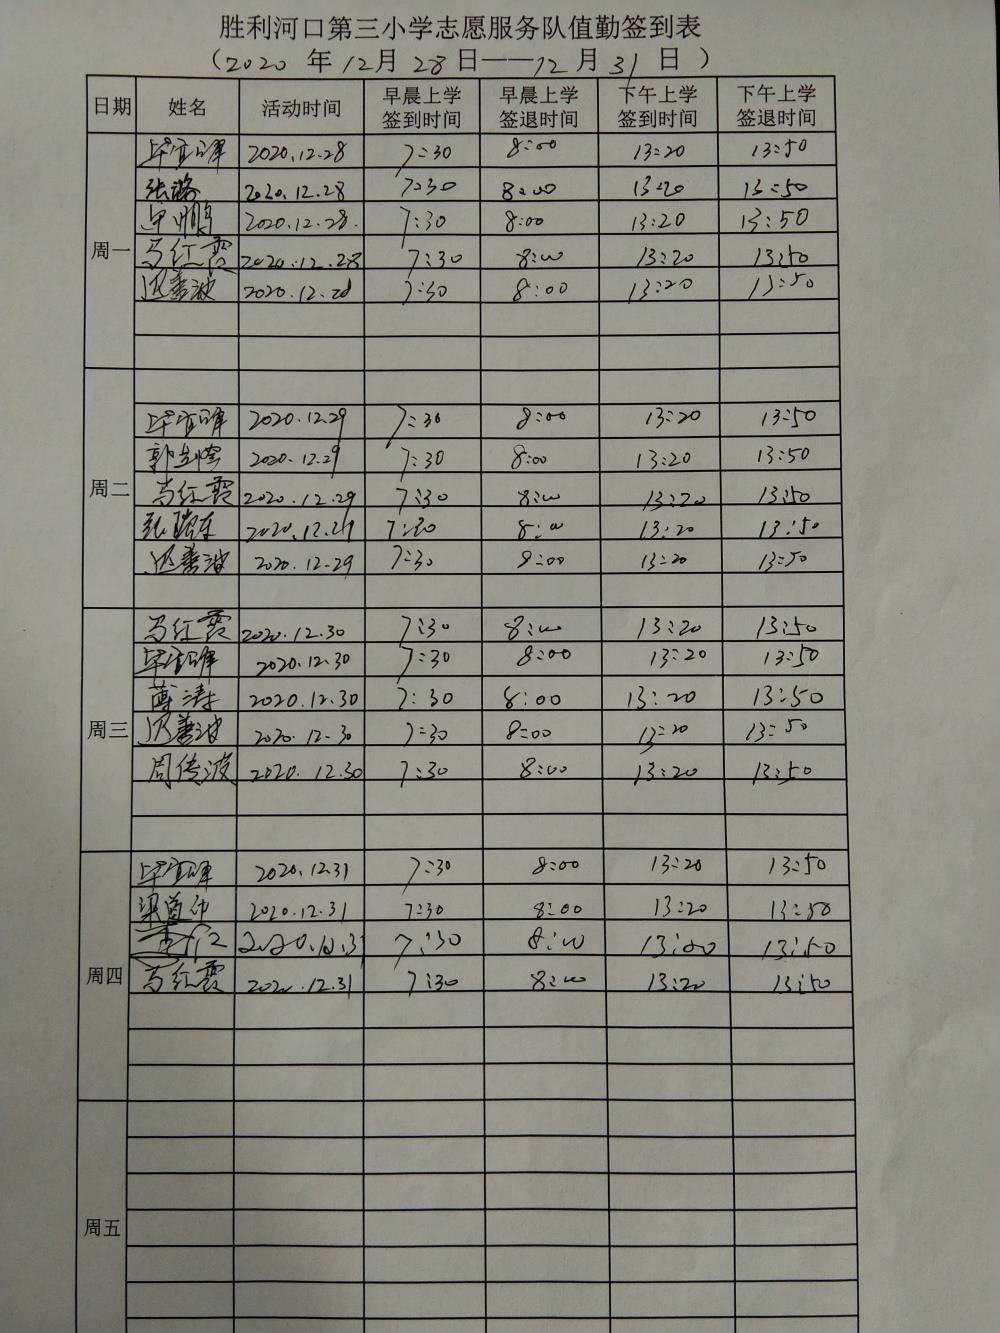 胜利河口第三小学志愿服务队值勤签到表
（2020 年 12月 28日——12月 31日）
日期 姓名 活动时间 早晨上学签到时间 早晨上学签退时间 下午上学签到时间 下午上学签退时间
周一
2020.12.28 7:30 8:00 13:20 13:50
张璐 2020.12.28 7:30 8:00 13:20 13:50
2020.12.28. 7:30 8:00 13:20 13:50
马红霞 2020.12.28 7:30 8:00 13:20 13:50
迟善波 2020.12.28 7:30 8:00 13:20 13:50
周二
2020.12.29 7:30 8:00 13:20 13:50
2020.12.29 7:30 8:00 13:20 13:50
马红霞 2020.12.29 7:30 8:00 13:20 13:50
张瑞东 2020.12.29 7:30 8:00 13:20 13:50
迟善波 2020.12.29 7:30 8:00 13:20 13:50
周三
马红霞 2020.12.30 7:30 8:00 13:20 13:50
2020.12.30 7:30 8:00 13:20 13:50
薄涛 2020.12.30 7:30 8:00 13:20 13:50
迟善波 2020.12.30 7:30 8:00 13:20 13:50
周传波 2020.12.30 7:30 8:00 13:20 13:50
周四
2020.12.31 7:30 8:00 13:20 13:50
2020.12.31 7:30 8:00 13:20 13:50
7:30 8:00 13:50
马红霞 2020.12.31 7:30 8:00 13:20 13:50
周五